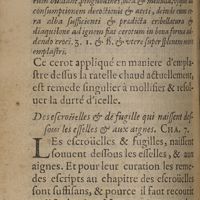 consumptionem decoctionis & aceti, deinde cum ce-
ra alba sufficienti & prædicta erbellatura &
diaquilone ad ignem fiat cerotum in bona forma ad-
dendo croci. ʒ. 1. & ß. & utere super splenem cum
emplastri.
Ce cerot appliqué en maniere d'empla-
stre dessus la ratelle chaud actuellement,
est remede singulier à mollifier & resol-
uer la durté d'icelle.
Des escroüelles & de fugille qui naissent des-
sous les esselles & aux aignes. CHA. 7.
LEs escroüelles & fugilles, naissent
dessous les esselles, & aux
aignes. Et pour leur curation les reme-
des escripts au chapitre des escroüelles
sont suffisans, & pource il faut recourir